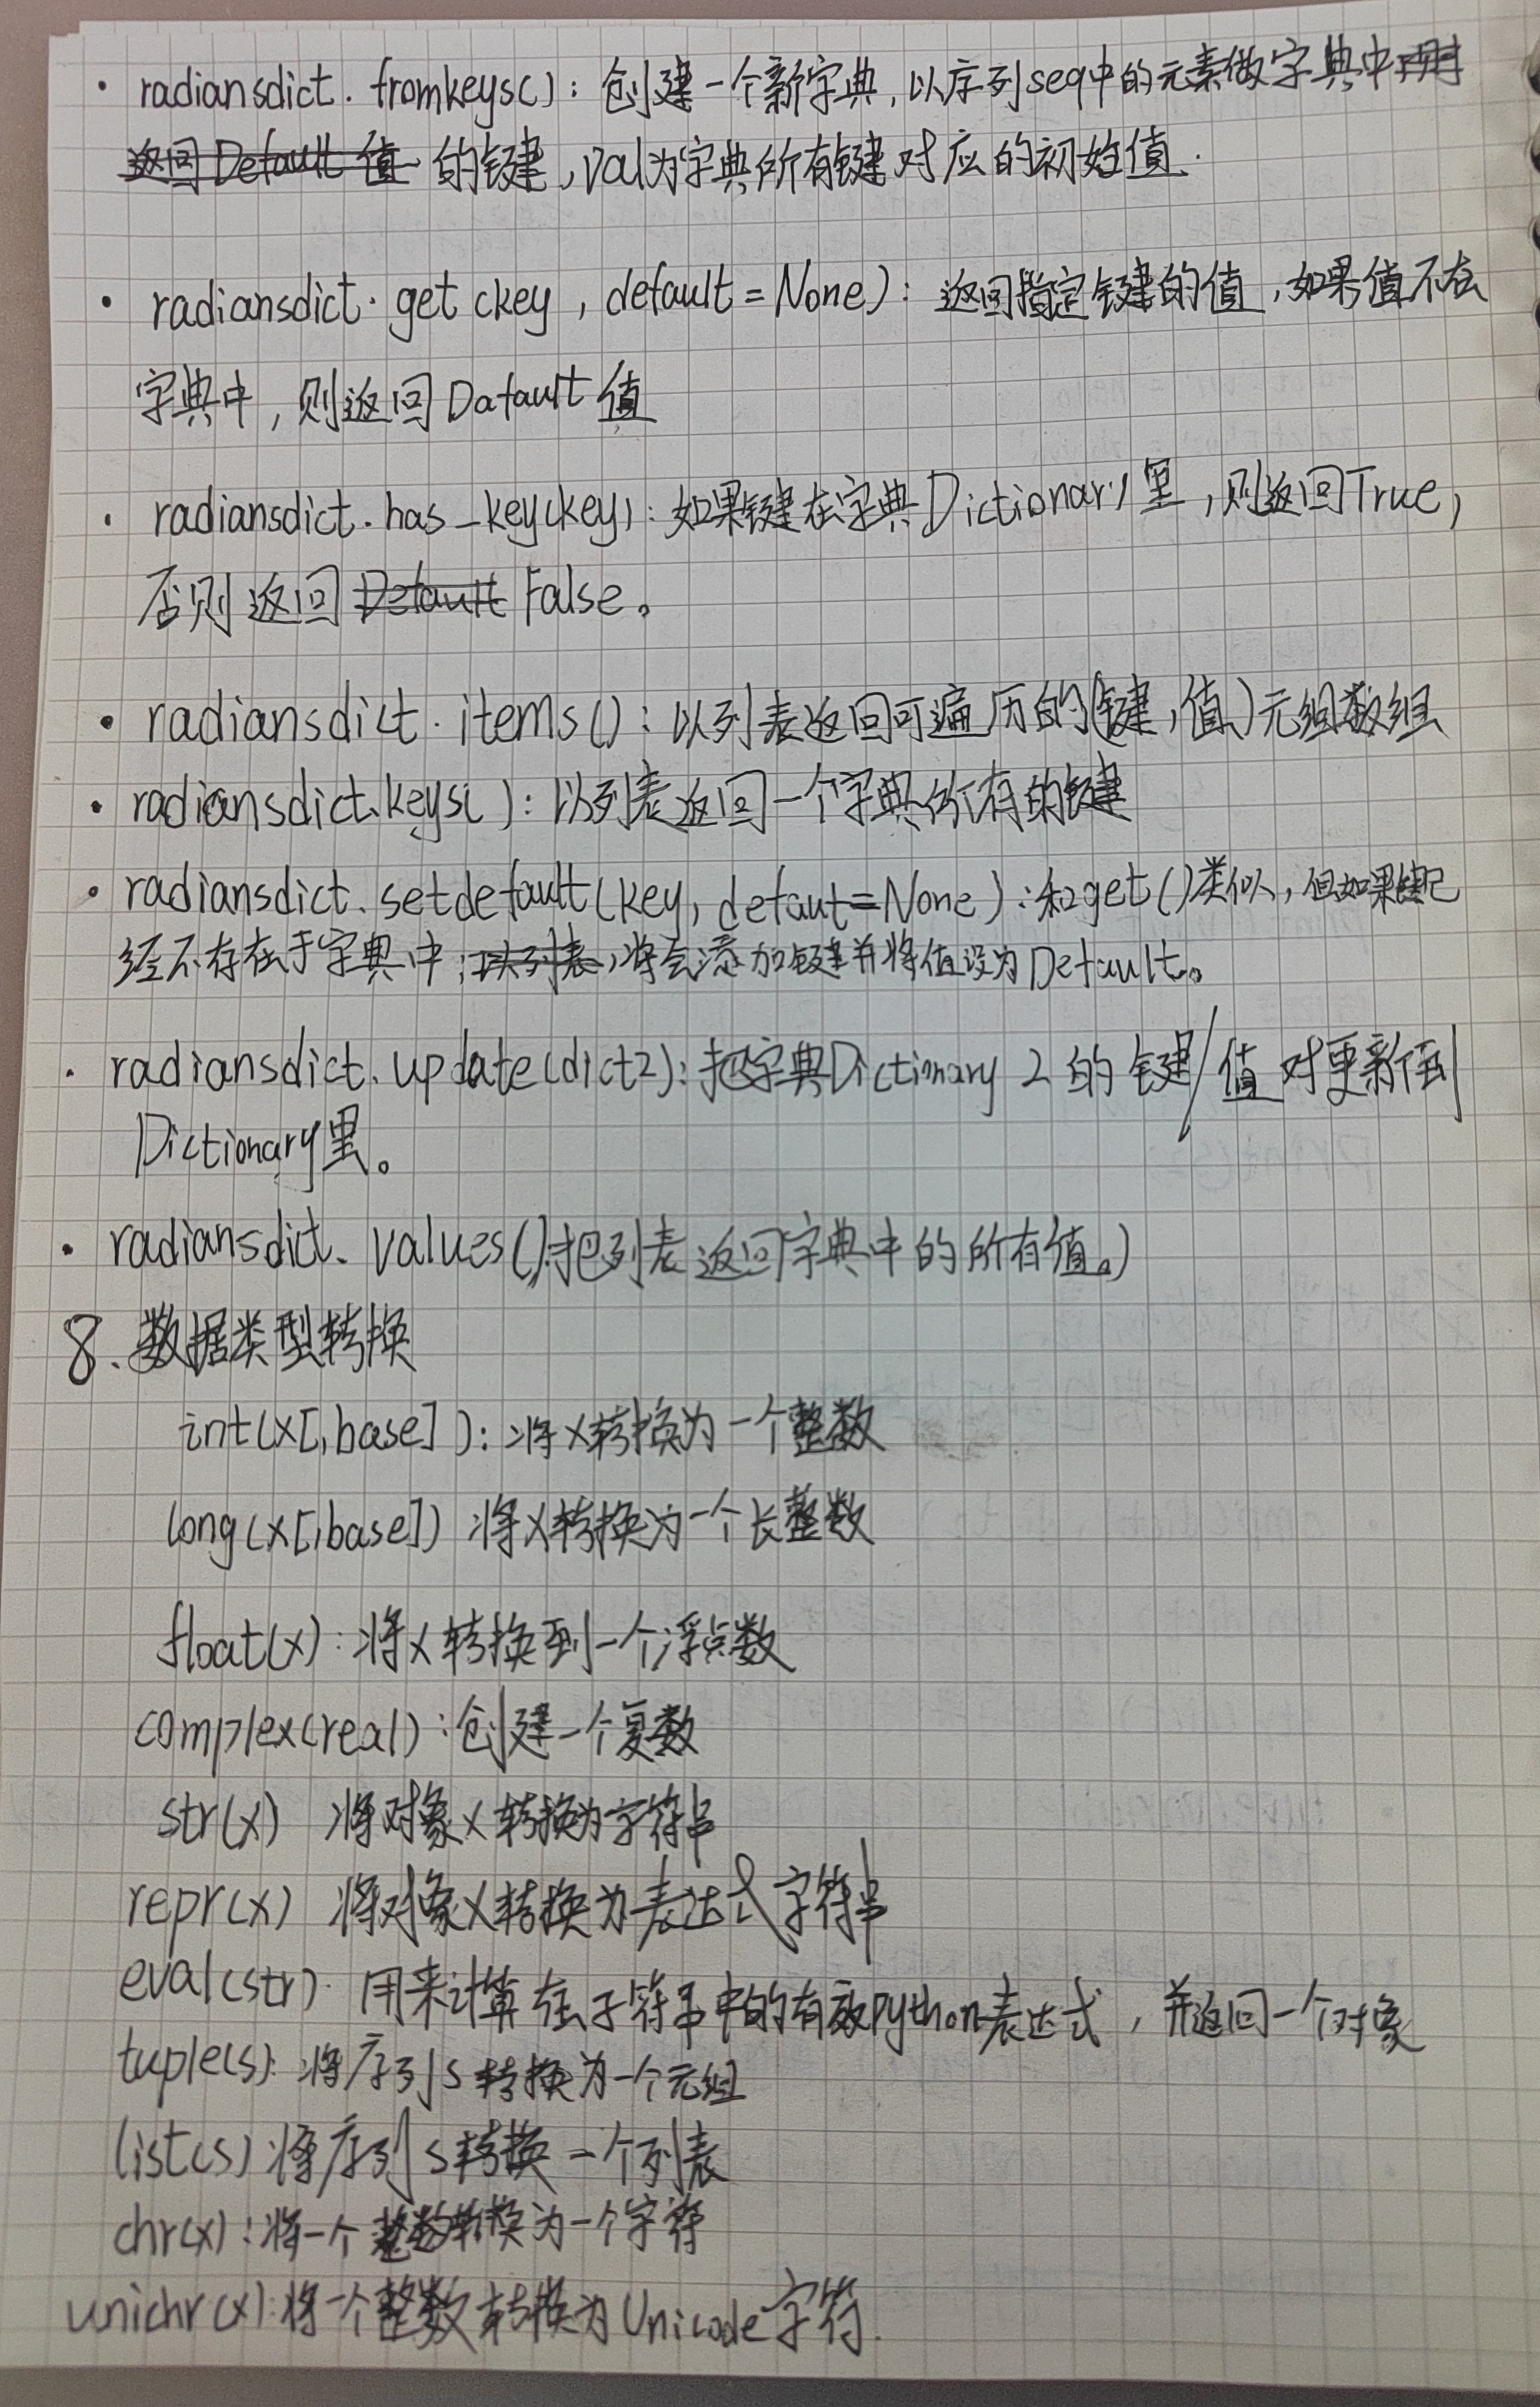 · radiansdict.fromkeys():创建一个新字典,以序列seq中的元素做字典中用
返回Default值 的键,val为字典所有键对应的初始值.
· radiansdict.get(key,default=None):返回指定键的值,如果值不在
字典中,则返回Datault值
· radiansdict.has_key(key):如果键在字典Dictionary里,则返回True,
否则返回Default False。
· radiansdict.items():以列表返回可遍历的(键,值)元组数组
· radiansdict.keys():以列表返回一个字典所有的键
· radiansdict.setdefault(key,defaut=None):和get()类似,但如果键已
经不存在于字典中,以列表,将会添加键并将值设为Default。
· radiansdict.update(dict2):把字典Dictionary 2 的 键/值 对更新到
Dictionary里。
· radiansdict.values():把列表返回字典中的所有值。)
8、数据类型转换
int(x[,base]):将x转换为一个整数
long(x[,base]) 将x转换为一个长整数
float(x):将x转换到一个浮点数
complex(real):创建一个复数
str(x) 将对象x转换为字符串
repr(x) 将对象x转换为表达式字符串
eval(str) 用来计算在字符串中的有效python表达式,并返回一个对象
tuple(s):将序列s转换为一个元组
list(s) 将序列s转换一个列表
chr(x):将一个整数转换为一个字符
unichr(x):将一个整数转换为Unicode字符.